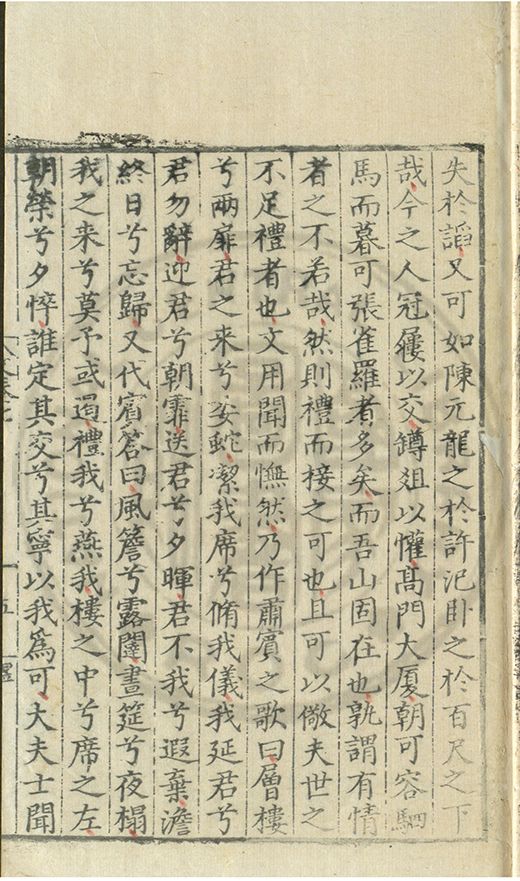 失於謟又可如陳元龍之於許汜卧之於百尺之下
哉今之人冠屨以交罇俎以懽髙門大厦朝可容駟
馬而暮可張雀羅者多矣而吾山固在也孰謂有情
者之不若哉然則禮而接之可也且可以儆夫世之
不足禮者也文用聞而憮然乃作肅賓之歌曰層樓
兮兩扉君之来兮委蛇潔我席兮脩我儀我延君兮
君勿辭迎君兮朝霏送君兮夕暉君不我兮遐棄澹
終日兮忘歸又代賓答曰風簷兮露闥晝筵兮夜榻
我之来兮莫予或遏禮我兮燕我樓之中兮席之左
朝榮兮夕悴誰定其交兮其寧以我爲可大夫士聞